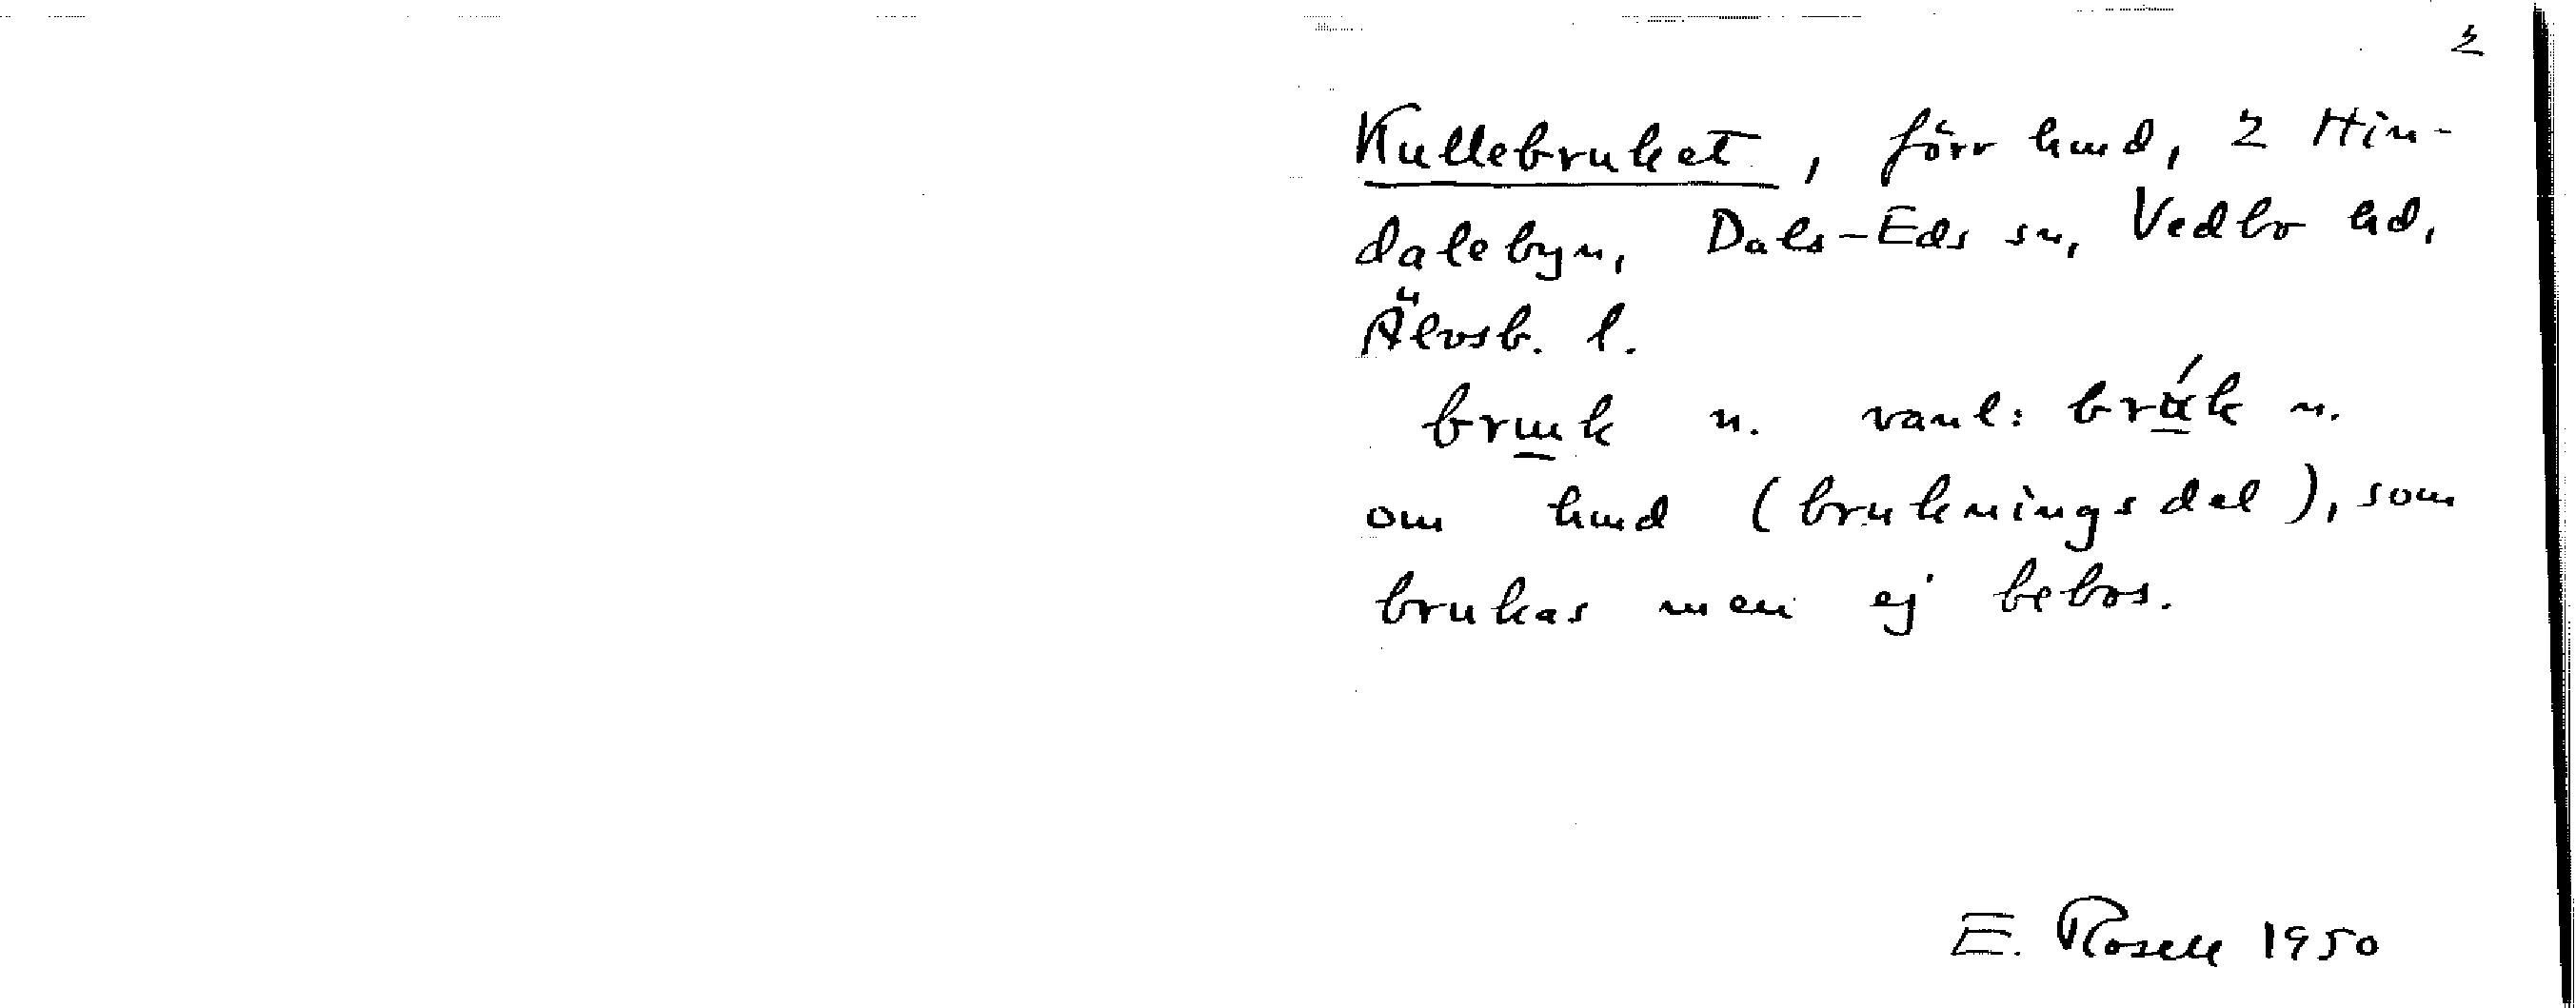 2
Kullebruket, förr hmd, 2 Hin-
dalebyn, Dals-Eds sn, Vedbo hd,
Älvsb. l.
bruk n. vanl: brúk n.
om hmd (brukningsdel), som
brukas men ej bebos.
E. Rosell 1950